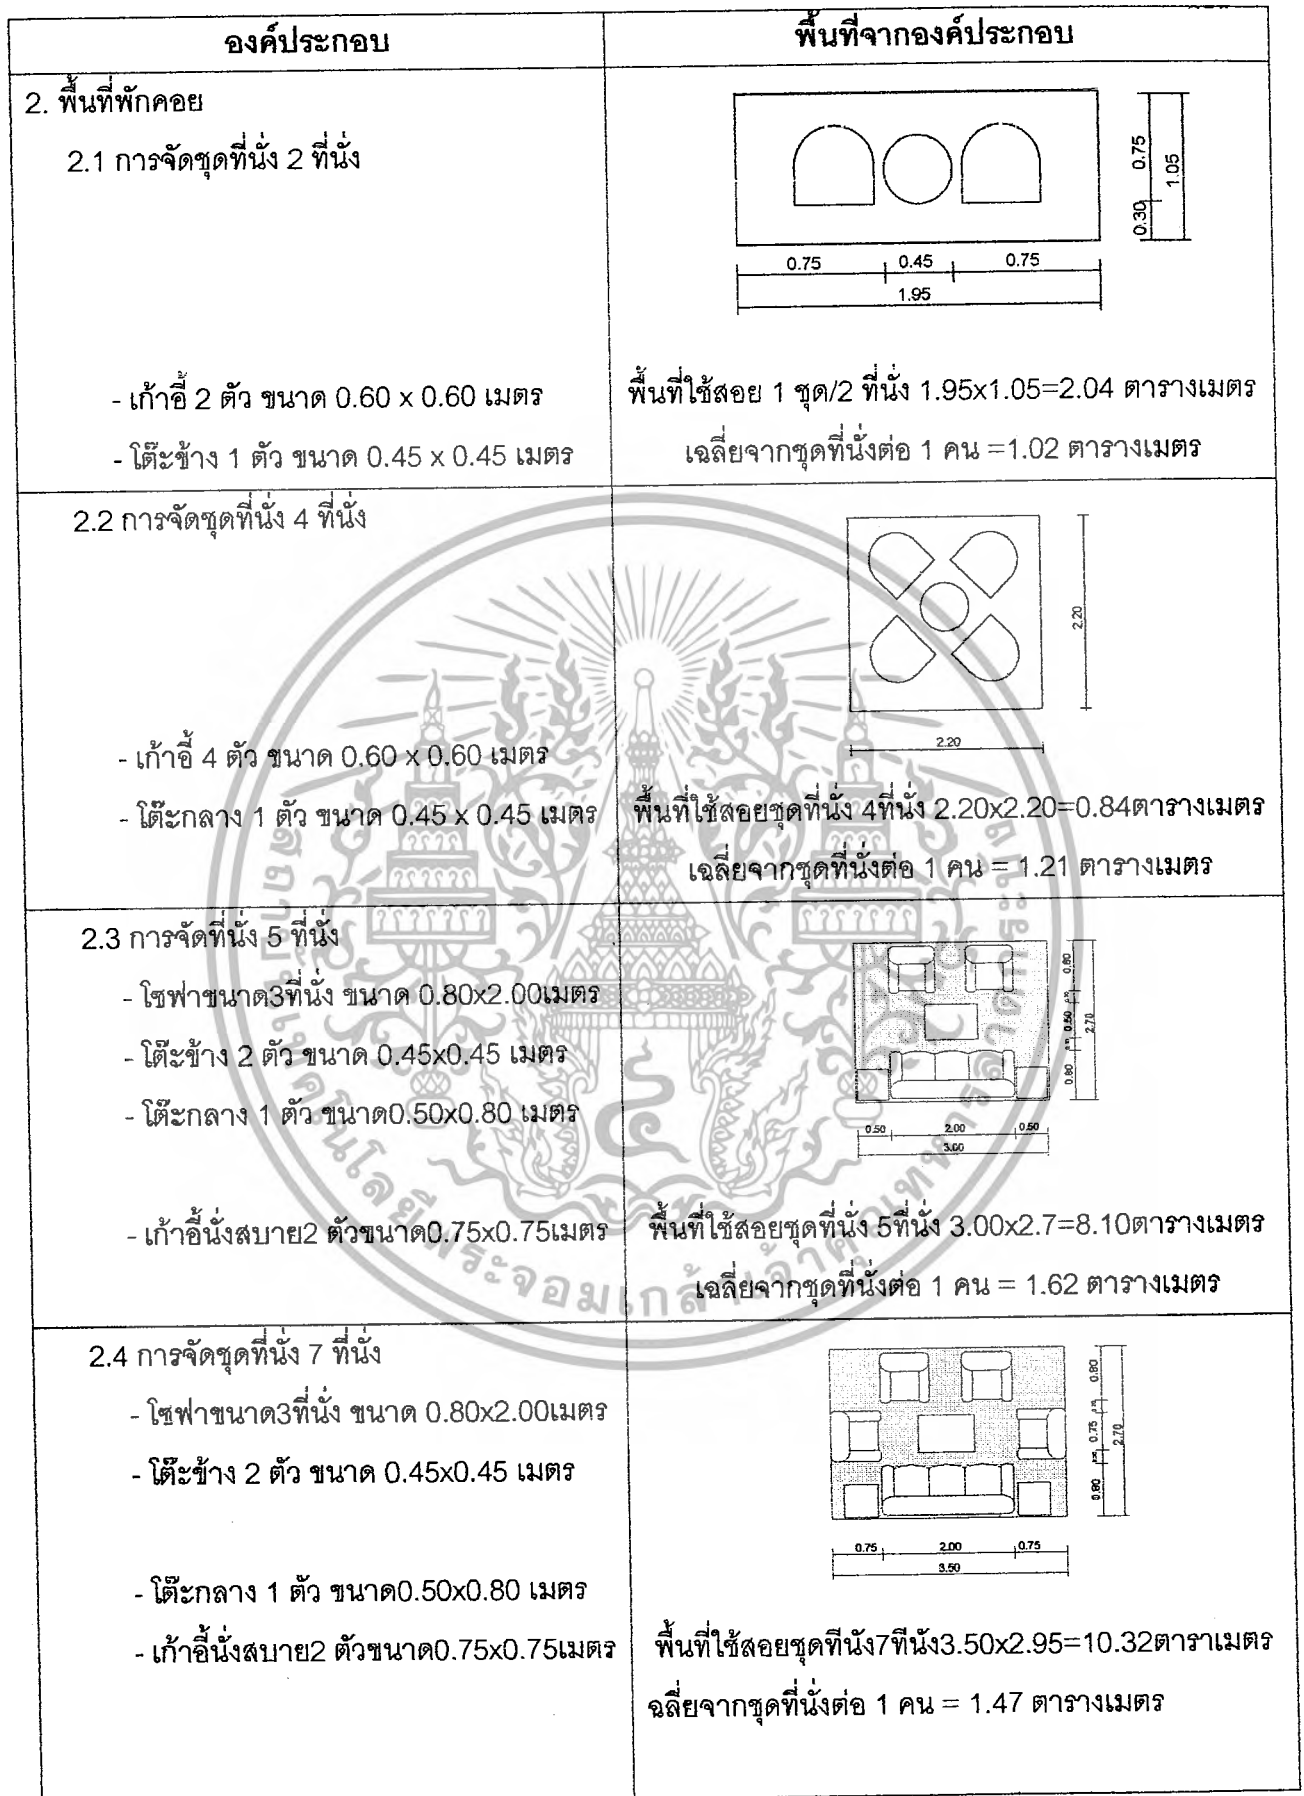 องค์ประกอบ
พื้นที่จากองค์ประกอบ
2. พื้นที่พักคอย
2.1 การจัดชุดที่นั่ง 2 ที่นั่ง
0.75
1.05
0.30
0.75 0.45 0.75
1.95
- เก้าอี้ 2 ตัว ขนาด 0.60 x 0.60 เมตร
- โต๊ะข้าง 1 ตัว ขนาด 0.45 x 0.45 เมตร
พื้นที่ใช้สอย 1 ชุด/2 ที่นั่ง 1.95x1.05=2.04 ตารางเมตร
เฉลี่ยจากชุดที่นั่งต่อ 1 คน =1.02 ตารางเมตร
2.2 การจัดชุดที่นั่ง 4 ที่นั่ง
2.20
2.20
- เก้าอี้ 4 ตัว ขนาด 0.60 x 0.60 เมตร
- โต๊ะกลาง 1 ตัว ขนาด 0.45 x 0.45 เมตร
พื้นที่ใช้สอยชุดที่นั่ง 4ที่นั่ง 2.20x2.20=0.84ตารางเมตร
เฉลี่ยจากชุดที่นั่งต่อ 1 คน = 1.21 ตารางเมตร
2.3 การจัดที่นั่ง 5 ที่นั่ง
- โซฟาขนาด3ที่นั่ง ขนาด 0.80x2.00เมตร
- โต๊ะข้าง 2 ตัว ขนาด 0.45x0.45 เมตร
- โต๊ะกลาง 1 ตัว ขนาด0.50x0.80 เมตร
- เก้าอี้นั่งสบาย2 ตัวขนาด0.75x0.75เมตร
0.80
0.50
2.70
0.80
0.50 2.00 0.50
3.00
พื้นที่ใช้สอยชุดที่นั่ง 5ที่นั่ง 3.00x2.7=8.10ตารางเมตร
เฉลี่ยจากชุดที่นั่งต่อ 1 คน = 1.62 ตารางเมตร
2.4 การจัดชุดที่นั่ง 7 ที่นั่ง
- โซฟาขนาด3ที่นั่ง ขนาด 0.80x2.00เมตร
- โต๊ะข้าง 2 ตัว ขนาด 0.45x0.45 เมตร
- โต๊ะกลาง 1 ตัว ขนาด0.50x0.80 เมตร
- เก้าอี้นั่งสบาย2 ตัวขนาด0.75x0.75เมตร
0.80
0.75
2.70
0.80
0.75 2.00 0.75
3.50
พื้นที่ใช้สอยชุดทีนัง7ทีนัง3.50x2.95=10.32ตาราเมตร
ฉลี่ยจากชุดที่นั่งต่อ 1 คน = 1.47 ตารางเมตร
สถาบันเทคโนโลยีพระจอมเกล้าเจ้าคุณทหารลาดกระบัง